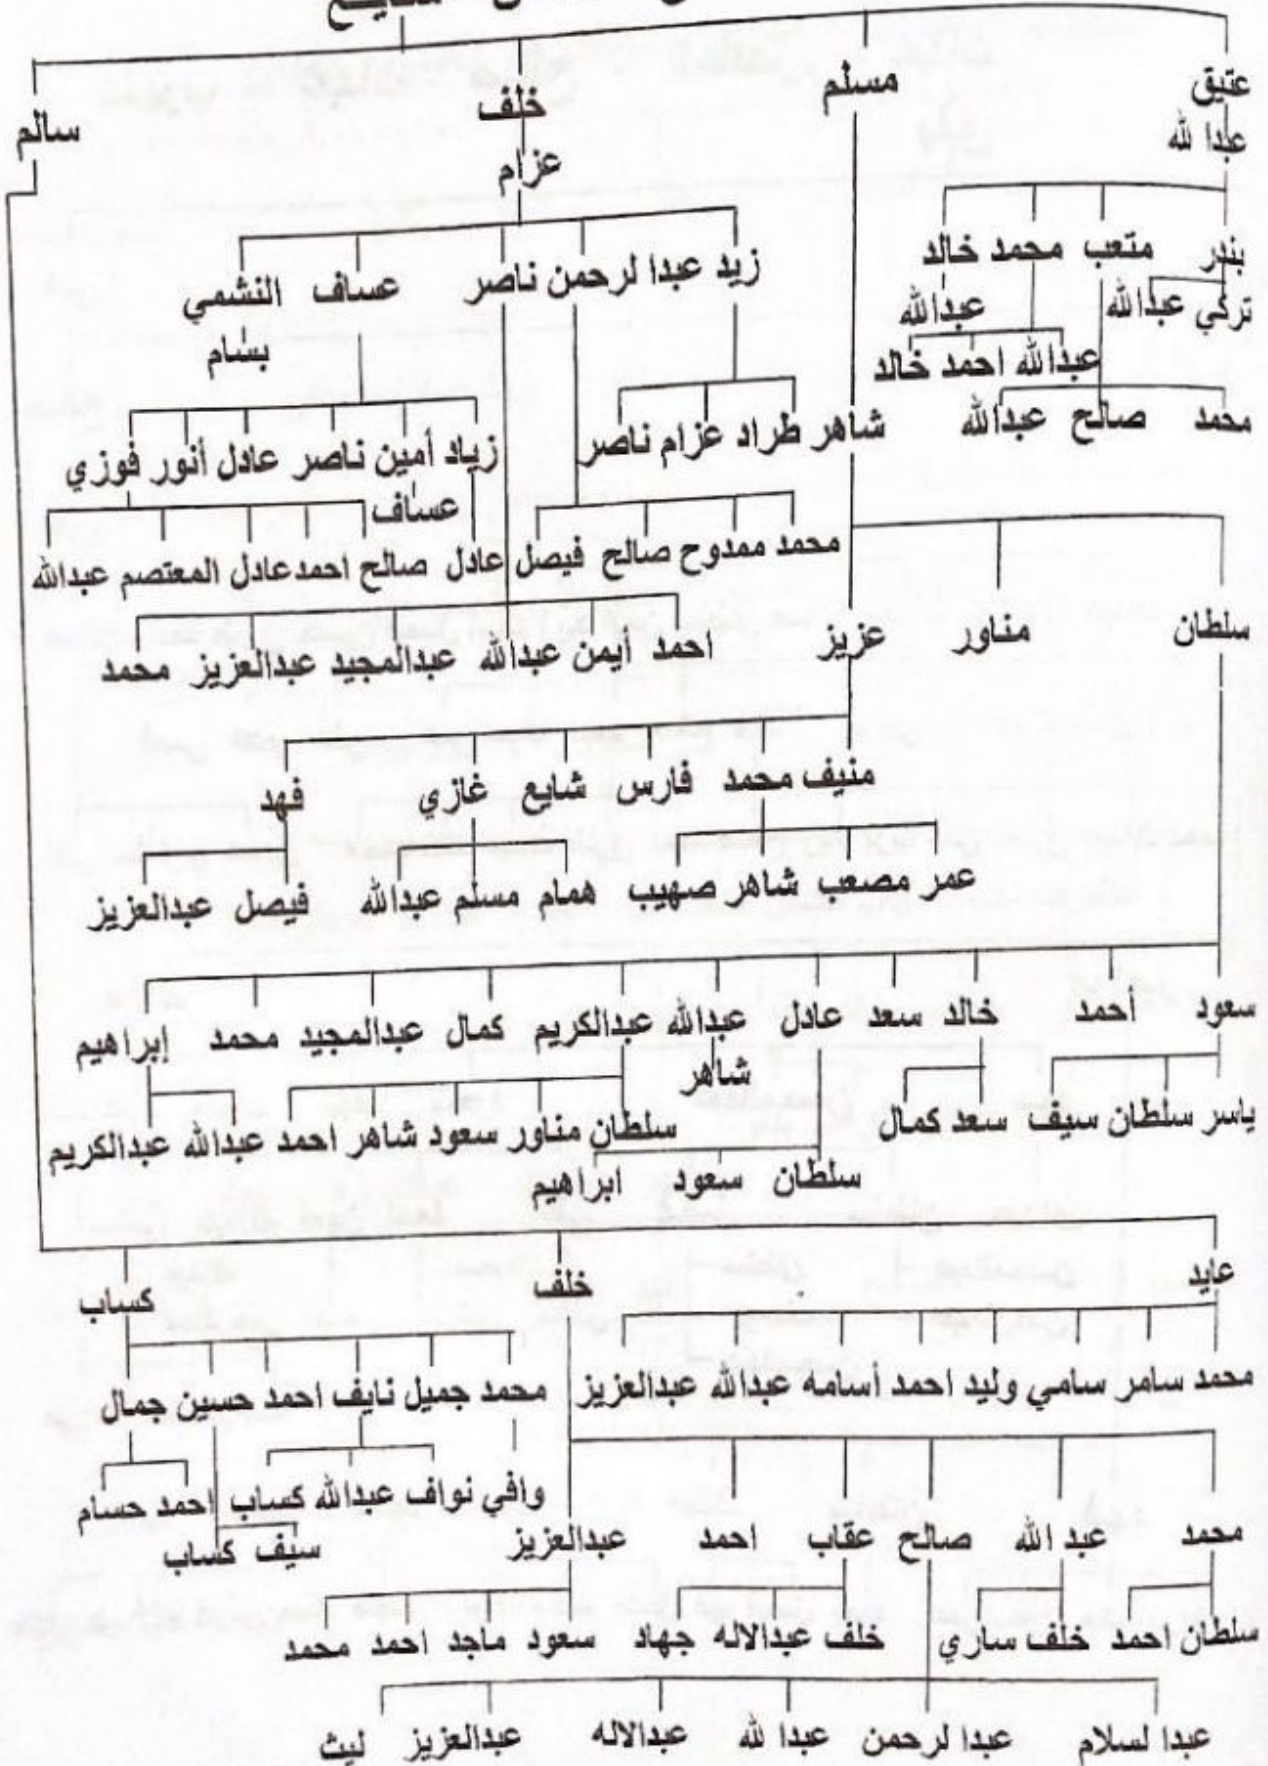 مسلم
عتيق
خلف
سالم
عبدا لله
عزام
بندر متعب محمد خالد
زيد عبدا لرحمن ناصر عساف النشمي
تركي عبدالله عبدالله
بسام
عبدالله احمد خالد
محمد صالح عبدالله
شاهر طراد عزام ناصر
زياد أمين ناصر عادل أنور فوزي
عساف
محمد ممدوح صالح فيصل عادل صالح احمد عادل المعتصم عبدالله
سلطان مناور عزيز
احمد أيمن عبدالله عبدالمجيد عبدالعزيز محمد
منيف محمد فارس شايع غازي فهد
عمر مصعب شاهر صهيب همام مسلم عبدالله فيصل عبدالعزيز
سعود أحمد خالد سعد عادل عبدالله عبدالكريم كمال عبدالمجيد محمد إبراهيم
شاهر
ياسر سلطان سيف سعد كمال سلطان مناور سعود شاهر احمد عبدالله عبدالكريم
سلطان سعود ابراهيم
عايد خلف كساب
محمد سامر سامي وليد احمد أسامه عبدالله عبدالعزيز محمد جميل نايف احمد حسين جمال
وافي نواف عبدالله كساب احمد حسام
محمد عبد الله صالح عقاب احمد عبدالعزيز سيف كساب
سلطان احمد خلف ساري خلف عبدالاله جهاد سعود ماجد احمد محمد
عبدا لسلام عبدا لرحمن عبدا لله عبدالاله عبدالعزيز ليث